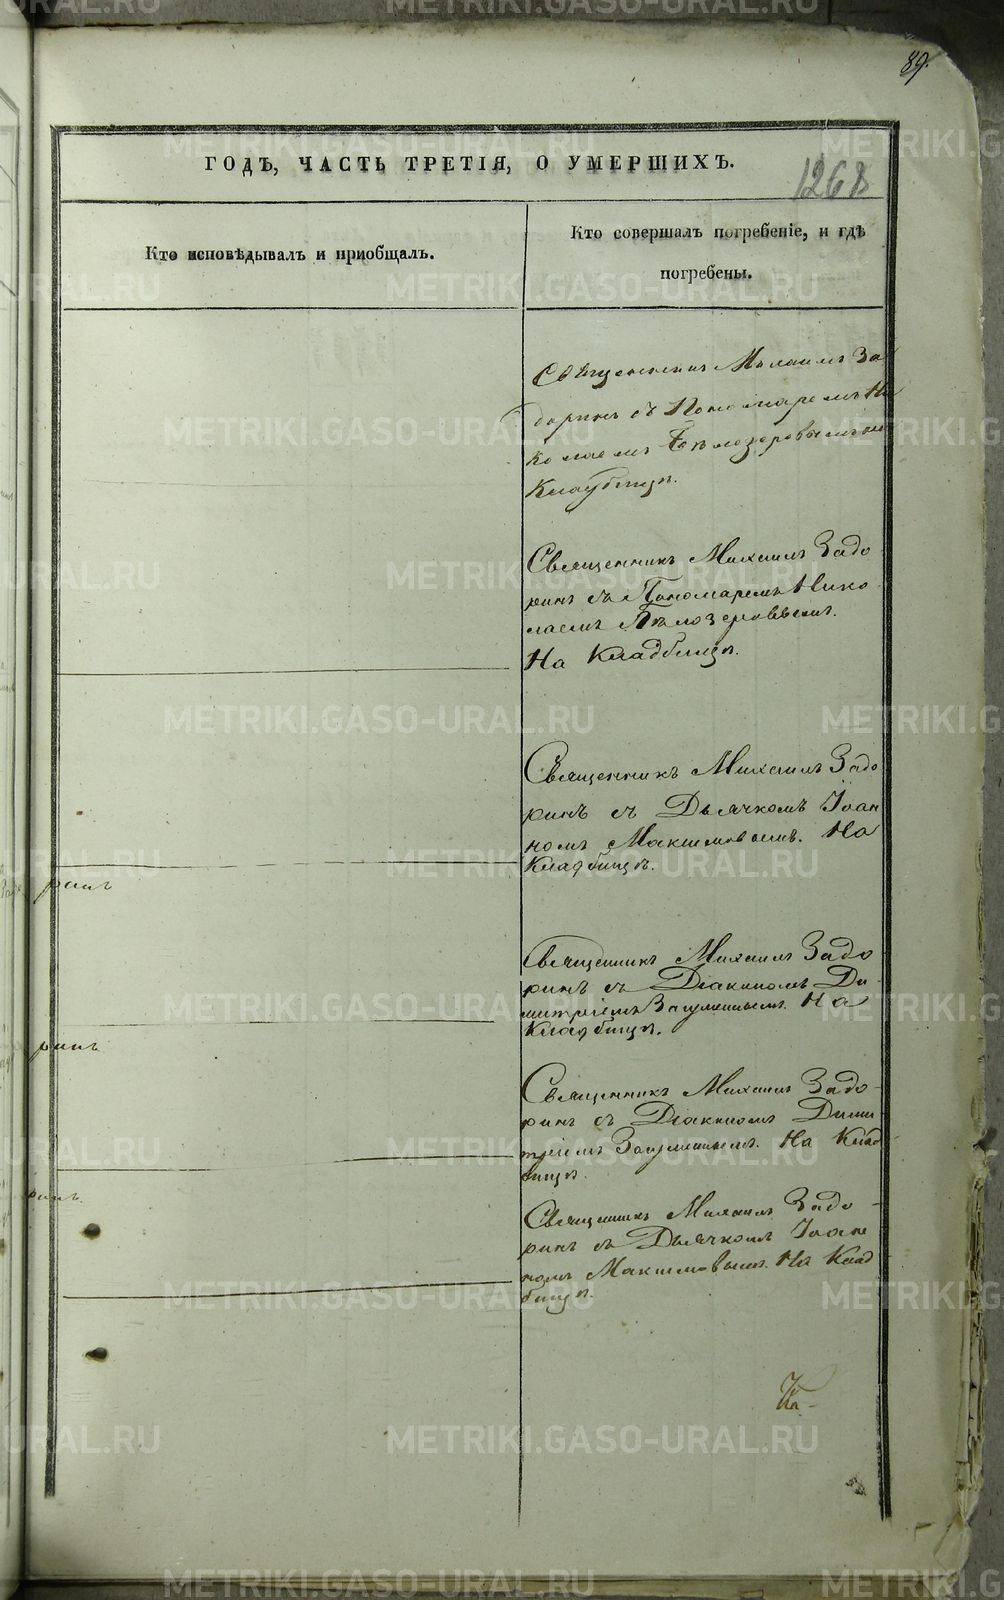 89.
ГОДѢ, ЧАСТЬ ТРЕТІЯ, О УМЕРШИХЪ.
1268
Кто исповѣдывалъ и пріобщалъ.
Кто совершалъ погребеніе, и гдѣ
погребены.
Священникъ Михаилъ За
доринъ съ Пономаремъ Ни
колаемъ Бѣлозеровымъ на
Кладбищѣ.
Священникъ Михаилъ Задо
ринъ съ Пономаремъ Нико
лаемъ Бѣлозеровымъ.
На Кладбищѣ.
Священникъ Михаилъ Задо
ринъ съ Дьячкомъ Іоан
номъ Максимовымъ. На
Кладбищѣ.
ринъ
Священникъ Михаилъ Задо
ринъ съ Діакономъ Ди
митріемъ
На
Кладбищѣ.
ринъ
Священникъ Михаилъ Задо
ринъ съ Діакономъ Дими
тріемъ
На Клад
бищѣ.
ринъ
Священникъ Михаилъ Задо
ринъ съ Дьячкомъ Іоан
номъ Максимовымъ. На Клад
бищѣ.
METRIKI.GASO-URAL.RU